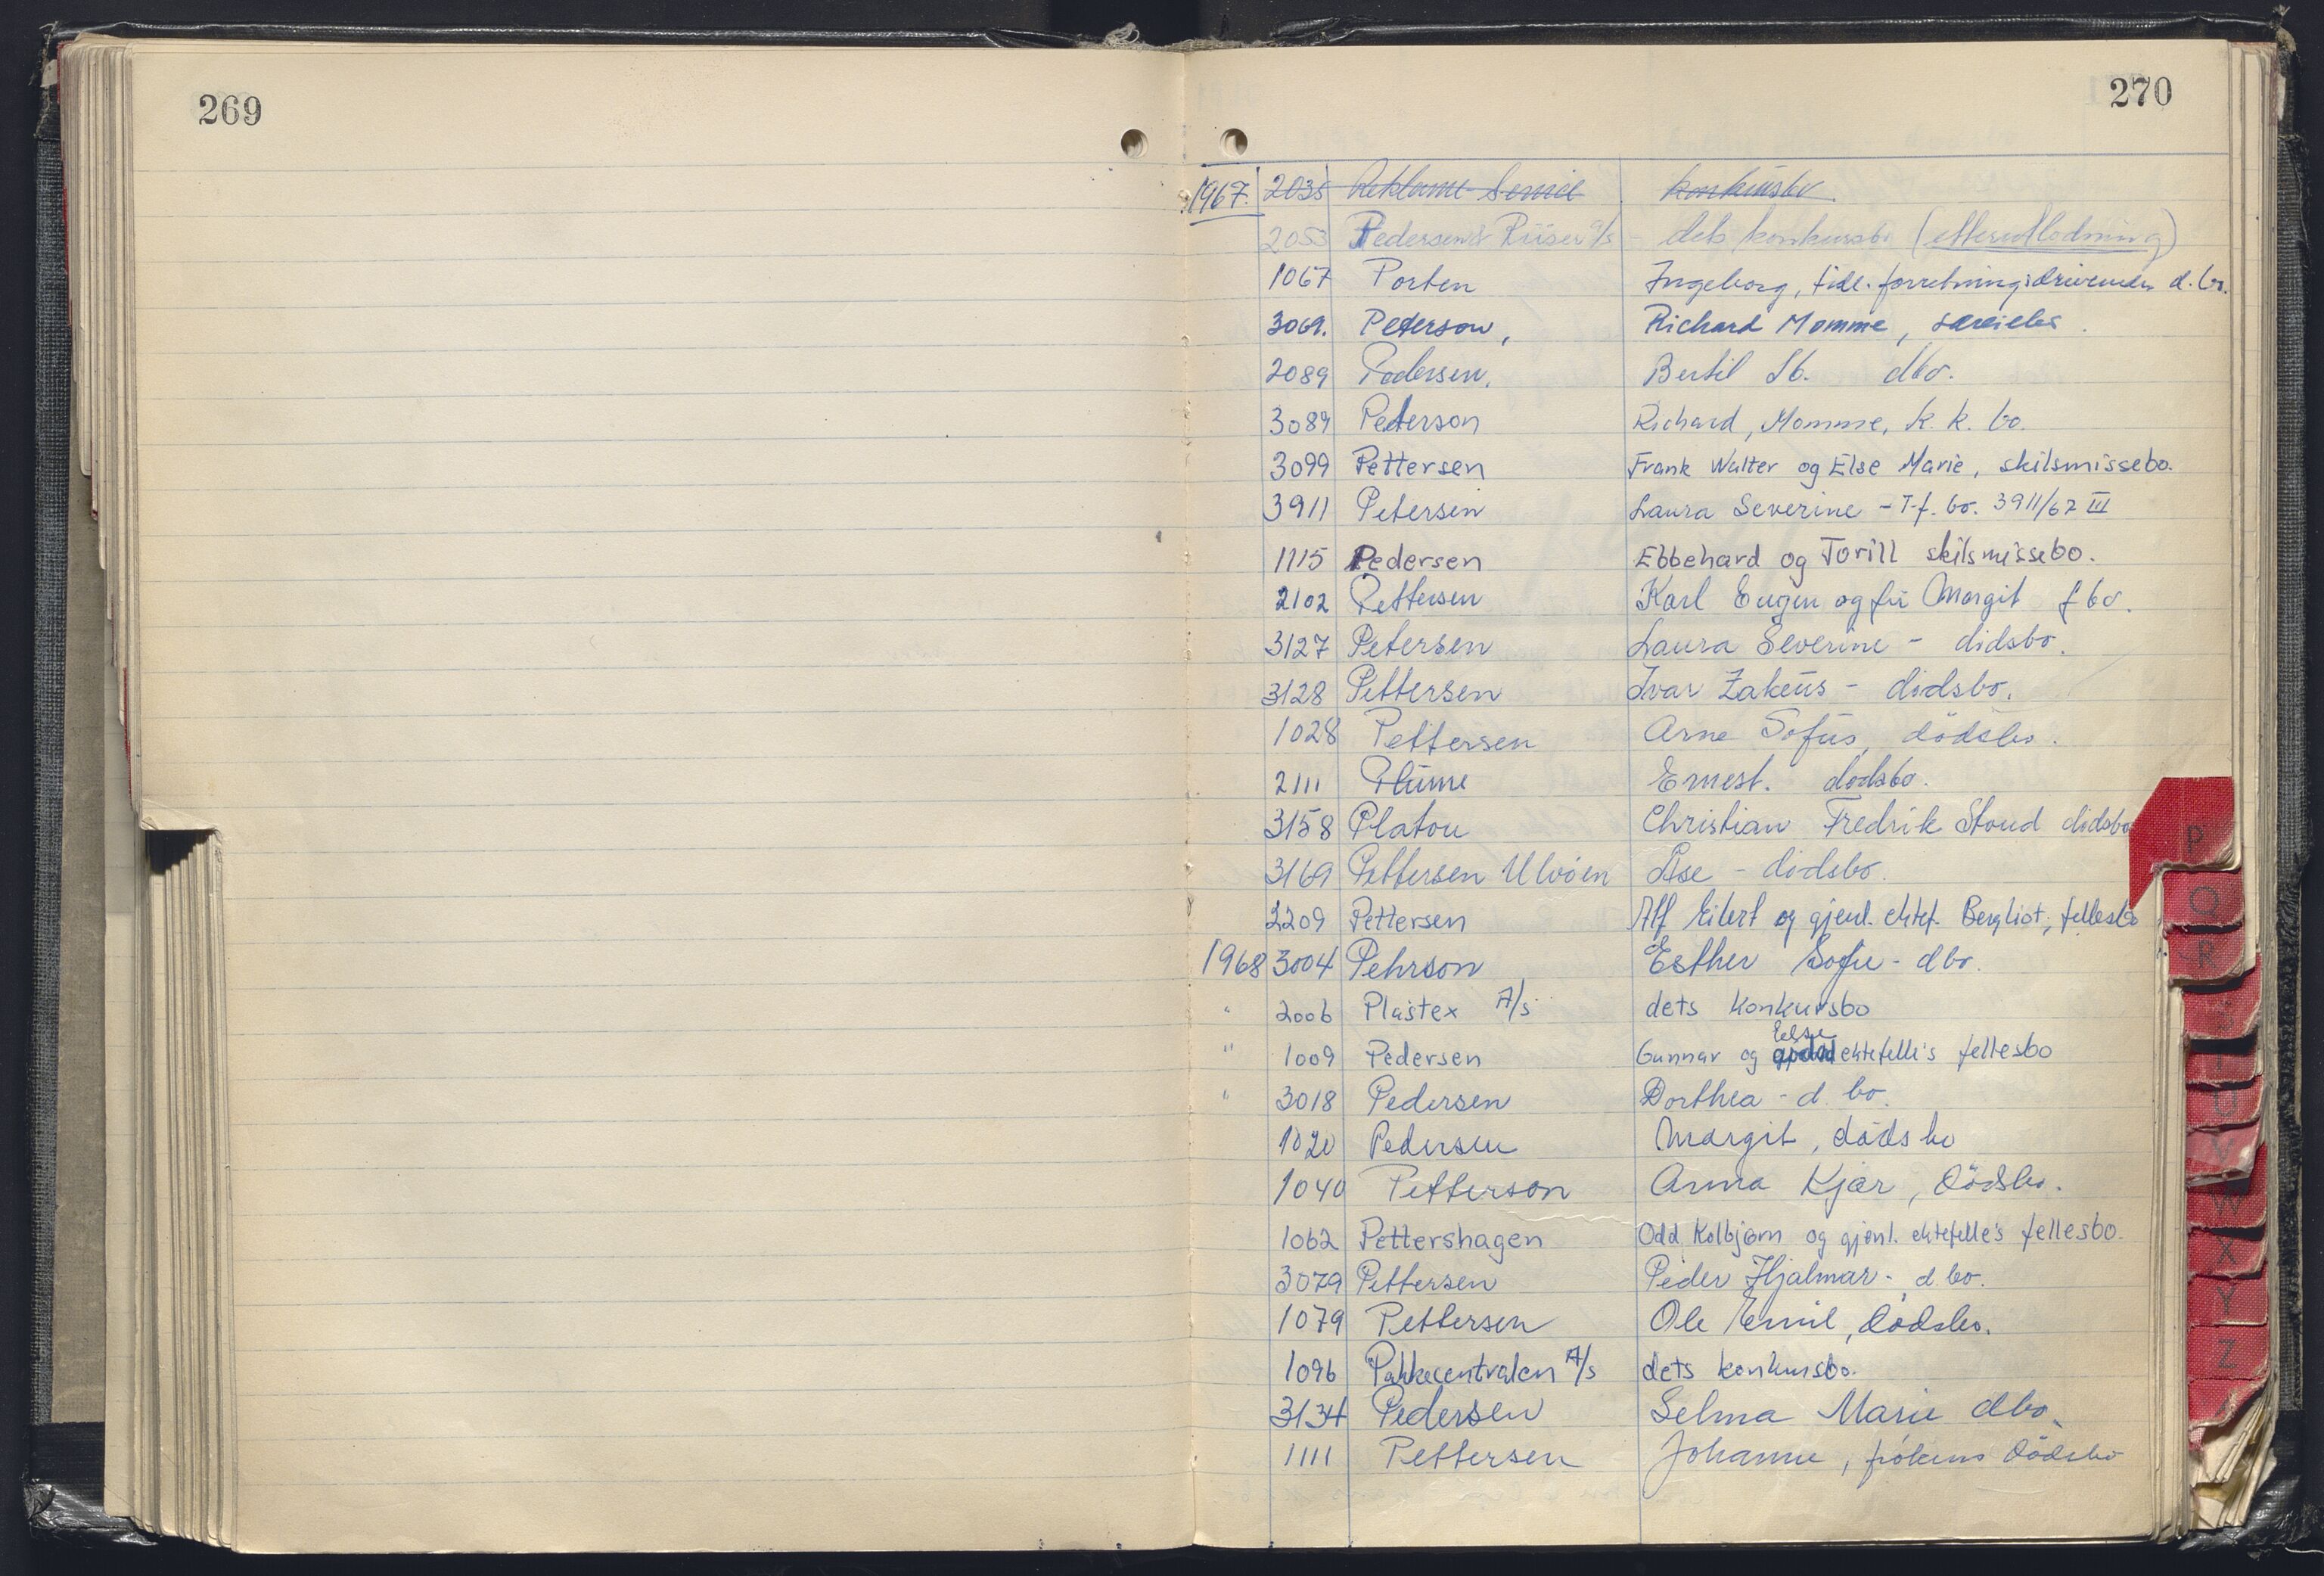 269
270
1967. 2035 Reklame Service konkursbo
2053 Pedersen & Riiser A/s - dets konkursbo (etterutlodning)
1067 Porten Ingeborg, tidl. forretningsdrivendes d.bo.
3069. Peterson, Richard Momme,
2089 Pedersen. Bertil St. dbo.
3089 Peterson Richard, Momme, k.k. bo.
3099 Pettersen Frank Walter og Else Marie, skilsmissebo.
3911 Petersen Laura Severine - T.f. bo. 3911/67 III
1115 Pedersen Ebbehard og Torill skilsmissebo.
2102 Pettersen Karl Eugen og fru Margit fbo.
3127 Petersen Laura Severine - dødsbo.
3128 Pettersen Ivar Zakeus - dødsbo.
1028 Pettersen Arne Sofus, dödsbo.
2111 Plume Ernest. dødsbo.
3158 Platou Christian Fredrik Stoud dødsbo
3169 Pettersen Ulvöen Åse - dødsbo.
2209 Pettersen Alf Eilert og gjenl. ektef. Bergliot, fellesbo
1968 3004 Pehrson Esther Sofie - dbo.
" 2006 Plastex A/s dets konkursbo
Else
" 1009 Pedersen Gunnar og ektefelle's fellesbo
" 3018 Pedersen Dorthea - d.bo.
1020 Pedersen Margit, dødsbo
1040 Petterson Anna Kjær, dödsbo.
1062 Pettershagen Odd Kolbjørn og gjenl. ektefelle's fellesbo.
3079 Pettersen Peder Hjalmar - d.bo.
1079 Pettersen Ole Emil, dödsbo.
1096 Pakkecentralen A/s dets konkursbo.
3134 Pedersen Selma Marie dbo.
1111 Pettersen Johanne, frøkens dödsbo
P
Q
R
T
U
V
W
X
Y
Z